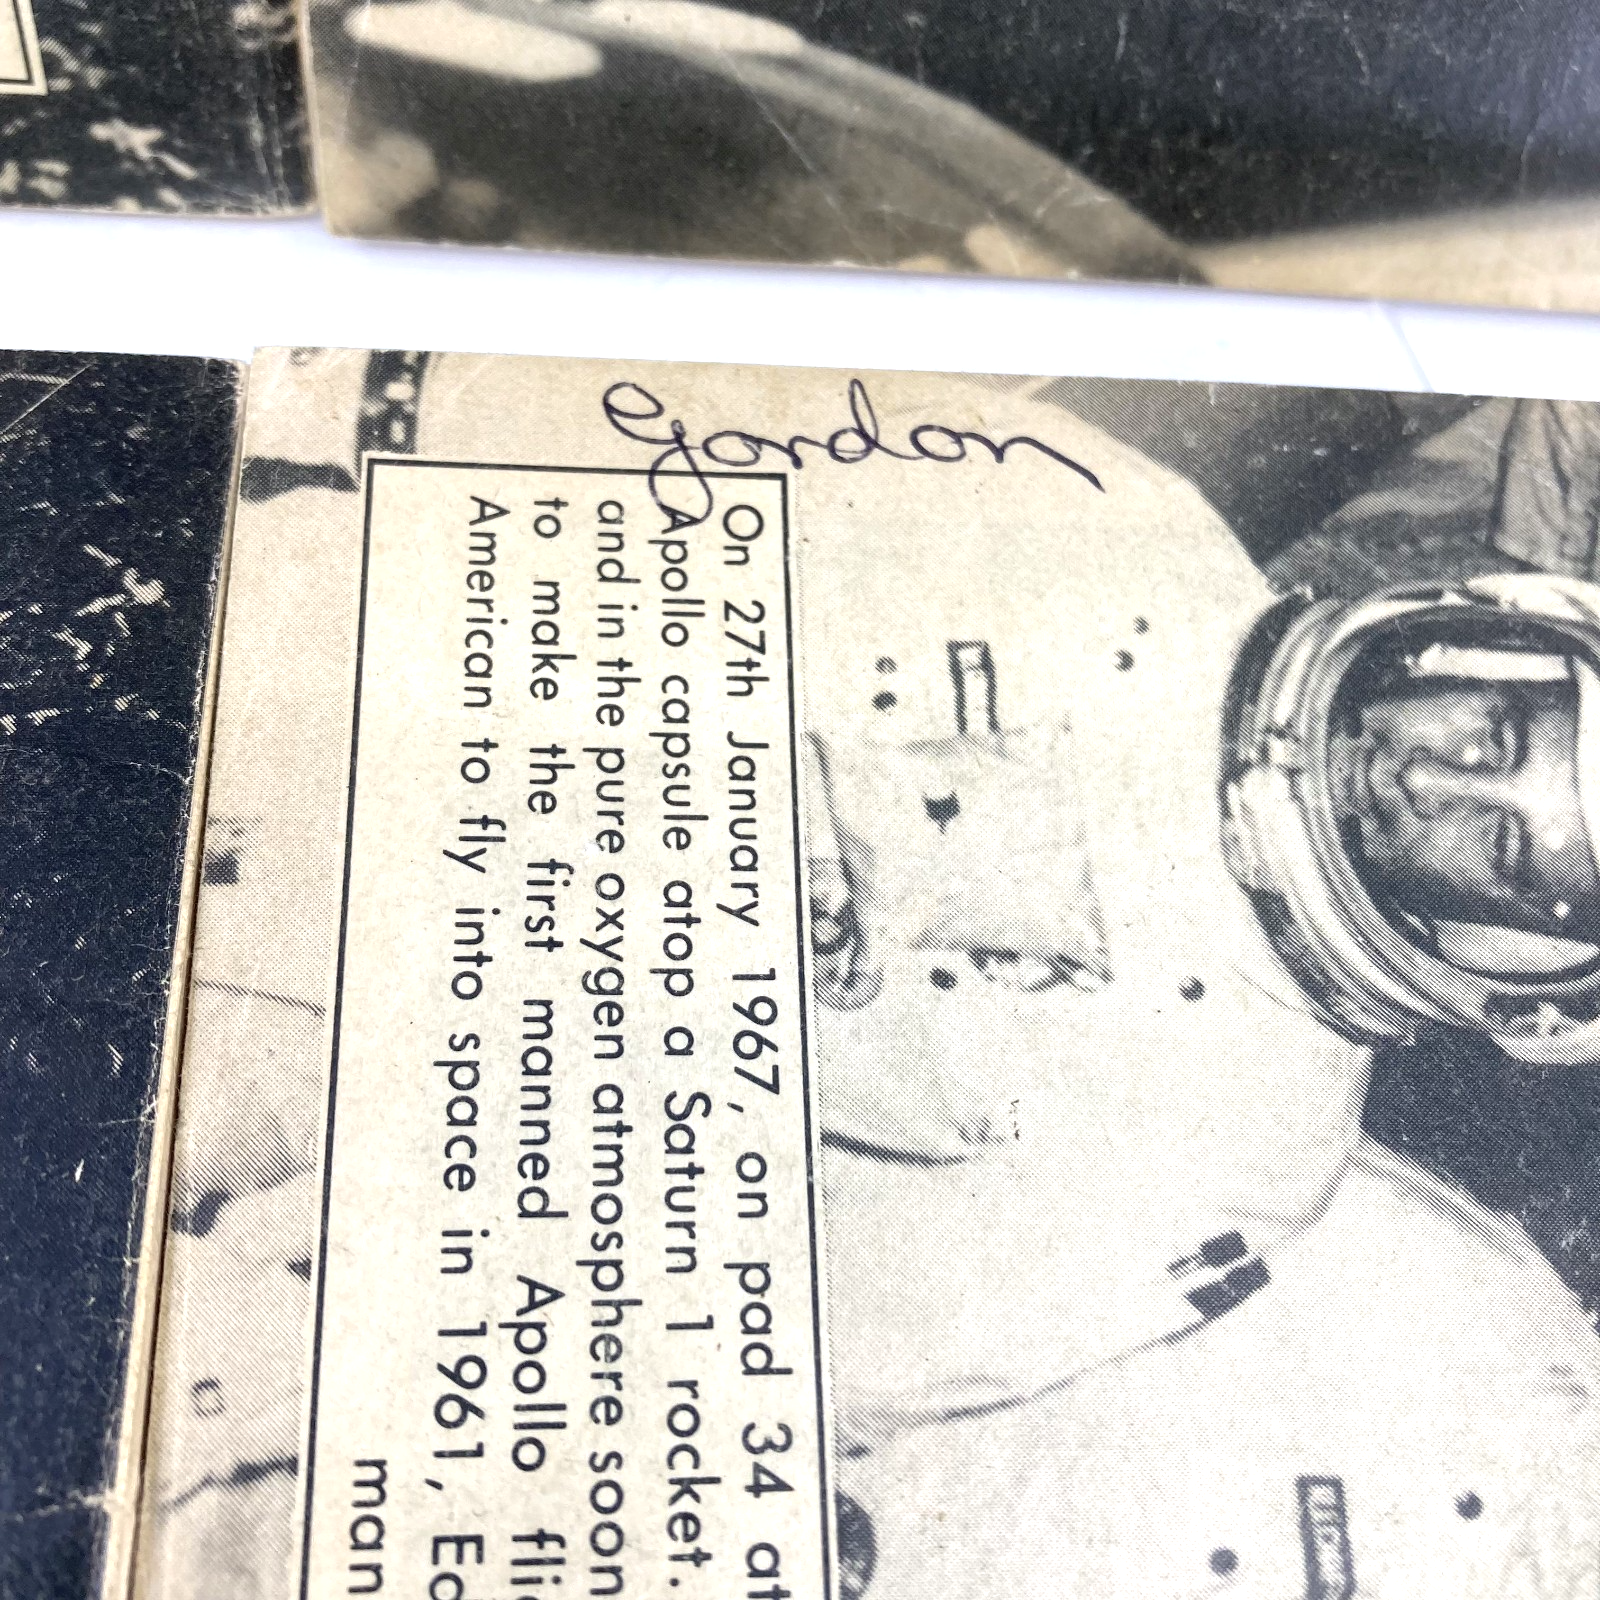 Gordon
On 27th January 1967, on pad 34 at
Apollo capsule atop a Saturn 1 rocket.
and in the pure oxygen atmosphere soon
to make the first manned Apollo flig
American to fly into space in 1961, Ed
man